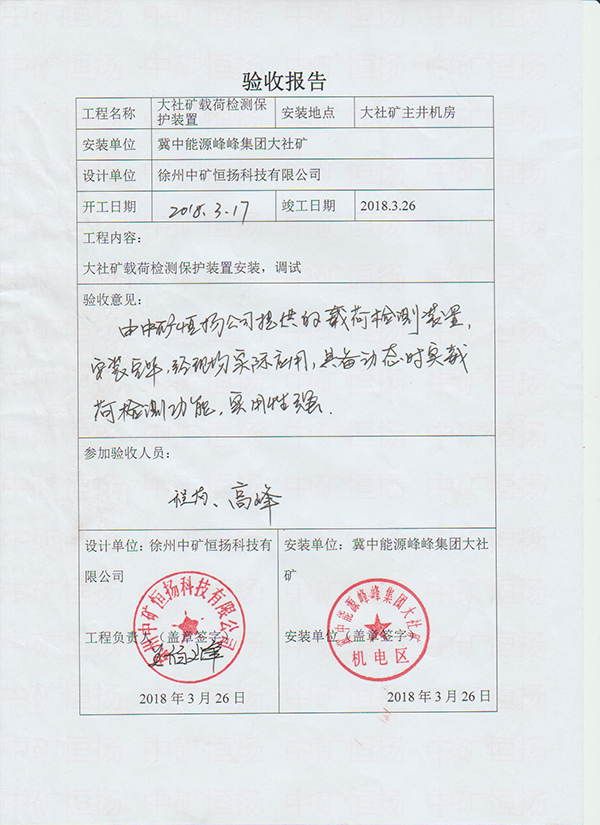 验收报告
工程名称
大社矿载荷检测保
护装置
安装地点
大社矿主井机房
安装单位
冀中能源峰峰集团大社矿
设计单位
徐州中矿恒扬科技有限公司
开工日期
2018.3.17
竣工日期
2018.3.26
工程内容：
大社矿载荷检测保护装置安装，调试
验收意见：
由中矿恒扬公司提供的载荷检测装置，
安装完毕，经现场实际应用，具备动态时实载
荷检测功能，实用性强.
参加验收人员：
高峰
设计单位：徐州中矿恒扬科技有
限公司
工程负责人（盖章签字）
2018 年 3 月 26 日
安装单位：冀中能源峰峰集团大社
矿
安装单位（盖章签字）
2018 年 3 月 26 日
徐州中矿恒扬科技有限公司
冀中能源峰峰集团大社矿
机电区
中矿恒扬